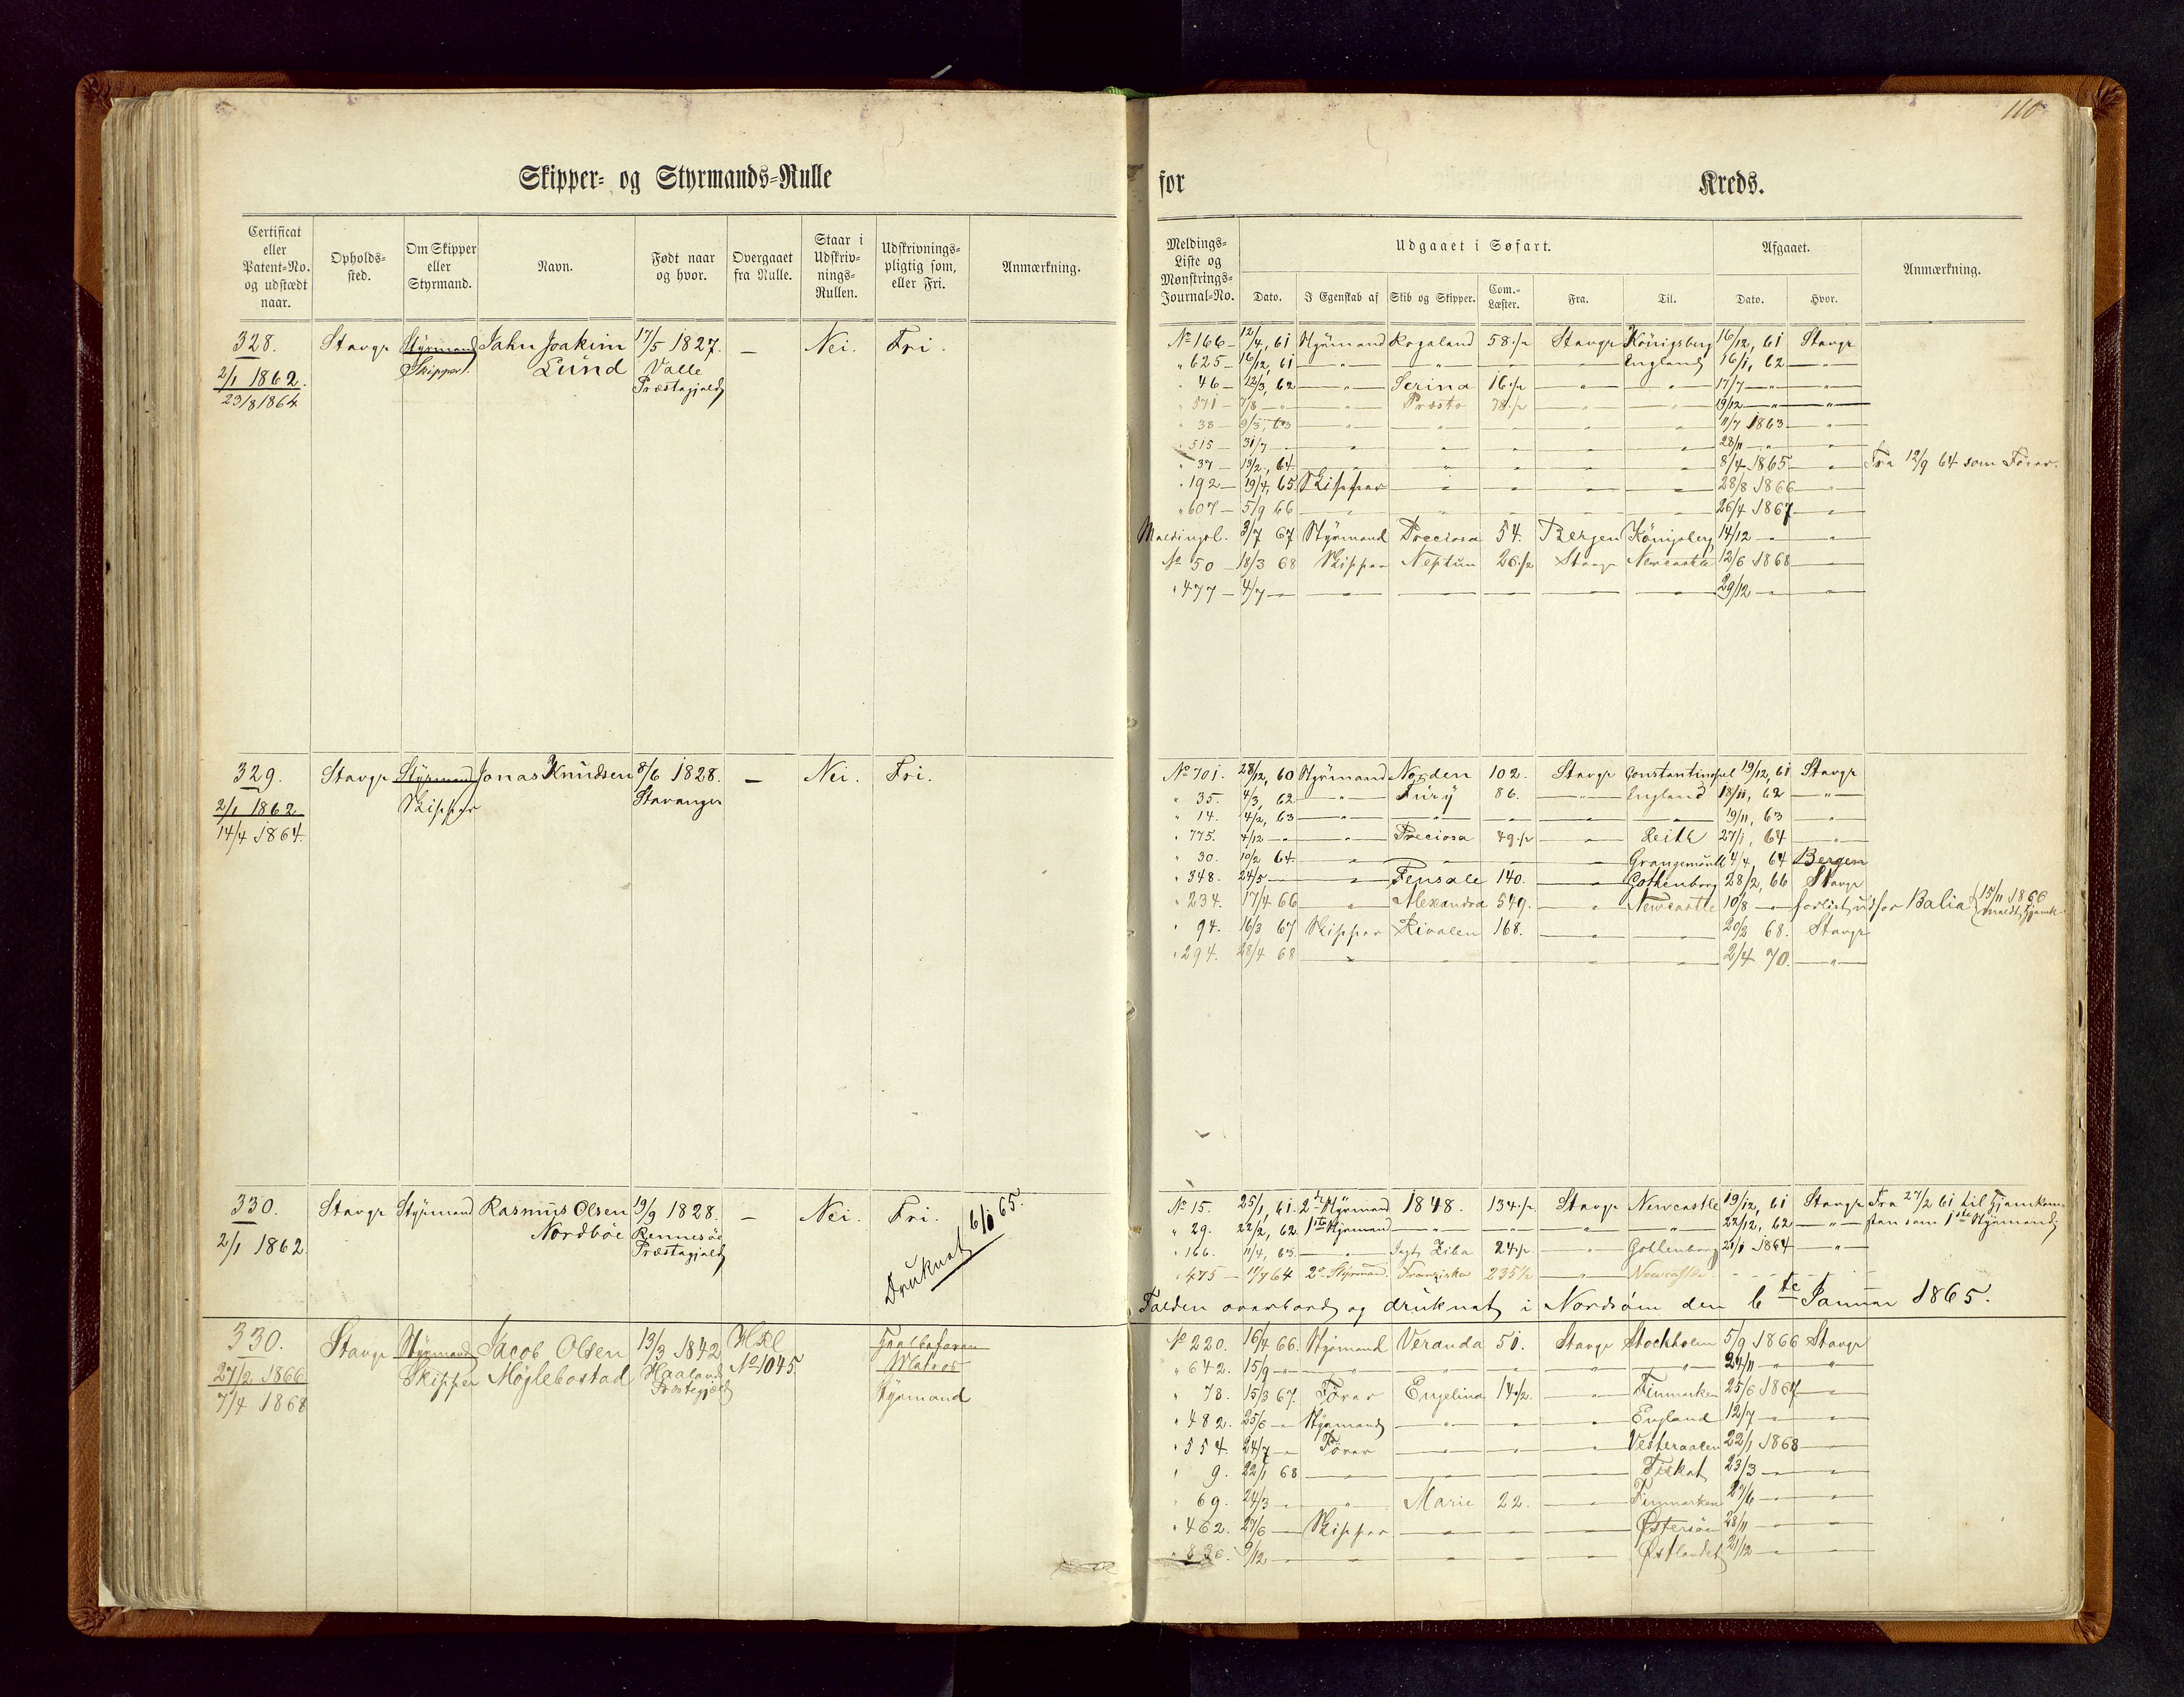 110
Skipper- og Styrmands-Rulle
for Kreds.
Certificat eller Patent-No. og udstædt naar. Opholds-sted. Om Skipper eller Styrmand. Navn. Født naar og hvor. Overgaaet fra Rulle. Staar i Udskriv-nings-Rullen. Udskrivnings-pligtig som, eller Fri. Anmærkning.
Meldings-Liste og Mønstrings-Journal-No. Udgaaet i Søfart. Afgaaet. Anmærkning.
Dato. I Egenskab af Skib og Skipper. Com.-Læster. Fra. Til. Dato. Hvor.
328. Stavgr Styrmand Jahn Joakim 17/5 1827. — Nei. Fri.
Skipper. Lund Valle
2/1 1862. Præstegjæld
23/8 1864
No 166 — 12/4, 61 Styrmand Rogaland 58 1/2 Stavgr Königsberg 16/12, 61 Stavgr
" 625 — 16/12, 61 — " — — " — — " — — " — England 16/1, 62 — " —
" 46 — 12/3, 62 — " — Serina 16 1/2 — " — — " — 17/7 — " — — " —
" 571 — 7/8 — " — — " — Præsto 78 1/2 — " — — " — 19/12 — " — — " —
" 38 — 9/3, 63 — " — — " — — " — — " — — " — 11/7 1863 — " —
" 515 — 31/7 — " — — " — — " — — " — — " — — " — 28/11 — " — — " —
" 37 — 13/2, 64 — " — — " — — " — — " — — " — 8/4 1865 — " — Fra 12/9 64 som Fører.
" 192 — 19/4, 65. Skipper — " — — " — — " — — " — 28/8 1866 — " —
" 607 — 5/9 66 — " — — " — — " — — " — — " — 26/4 1867 — " —
Meldingsl. 3/7 67 Styrmand Preciosa 54. Bergen Königsberg 14/12 — " — — " —
No 50 — 18/3 68 Skipper Neptun 26 1/2 Stavgr Newcastle 12/6 1868 — " —
" 477 — 4/7 — " — — " — — " — — " — — " — — " — 29/12 — " — — " —
329. Stavgr Styrmand Jonas Knudsen 8/6 1828. — Nei. Fri.
2/1 1862 Skipper Stavanger
14/4 1864.
No 701. 28/12, 60 Styrmand Norden 102. Stavgr Constantinopel 19/12, 61 Stavgr
" 35. 4/3, 62 — " — Fury 86. — " — England 18/11, 62 — " —
" 14. 4/2, 63 — " — — " — — " — — " — — " — 19/11, 63 — " —
" 775. 4/12 — " — — " — Preciosa 49 1/2 — " — Leith 27/1, 64 — " —
" 30. 10/2 64 — " — — " — — " — — " — Grangemouth 4/4, 64 Bergen
" 348. 24/5 — " — — " — Fensale 140. — " — Gothenborg 28/2, 66 Stavgr
" 234. 17/4 66 — " — Alexandra 549. — " — Newcastle 10/8 — " — forlist udfor Balia 15/11 1866 meldt hjemk
" 94. 16/3 67 Skipper Rivalen 168. — " — — " — 20/2 68. Stavgr
" 294. 28/4 68 — " — — " — — " — — " — — " — 2/4 70. — " —
330. Stavgr Styrmand Rasmus Olsen 19/9 1828. — Nei. Fri. Druknet 6/1 65.
2/1 1862. Nordbøe Rennesøe
Præstegjæld
No 15. 25/1, 61. 2d Styrmand 1848. 134 1/2 Stavgr Newcastle 19/12, 61 Stavgr Fra 27/2 61 til hjemkom-
" 29. 22/2, 62. 1ste Styrmand — " — — " — — " — — " — 22/12, 62 — " — sten som 1ste Styrmand
" 166. 11/4, 63. — " — Jagt Ziba 24 1/2 — " — Gothenborg 21/1 1864 — " —
" 475 — 11/7 64 2d Styrmand. Franziska 235 1/2 — " — Newcastle
Falden overbord og druknet i Nordsøen den 6te Januar 1865.
330. Stavgr Styrmand Jacob Olsen 13/3 1842 No 1045
27/2 1866 Skipper Møglebostad Haaland Matros
7/4 1868 Præstegjæld Styrmand
No 220. 16/4 66. Styrmand Veranda 51. Stavgr Stockholm 5/9 1866 Stavgr
" 642. 15/9 — " — — " — — " — — " — — " — — " — 24/11 — " — — " —
" 78. 15/3 67. Fører Engelina 14 1/2. — " — Finmarken 25/6 1867 — " —
" 482. 25/6 — " — Styrmand — " — — " — — " — England 12/7 — " — — " —
" 554. 24/7 — " — Fører — " — — " — — " — Vesteraalen 22/1 1868 — " —
" 9. 22/1 68 — " — — " — — " — — " — Fiskat 23/3 — " — — " —
" 69. 24/3 — " — — " — Marie 22. — " — Finmarken 27/6 — " — — " —
" 462. 27/6 — " — Skipper — " — — " — — " — Østersøen 28/11 — " — — " —
" 836. 9/12 — " — — " — — " — — " — — " — Østlandet 21/12 — " — — " —